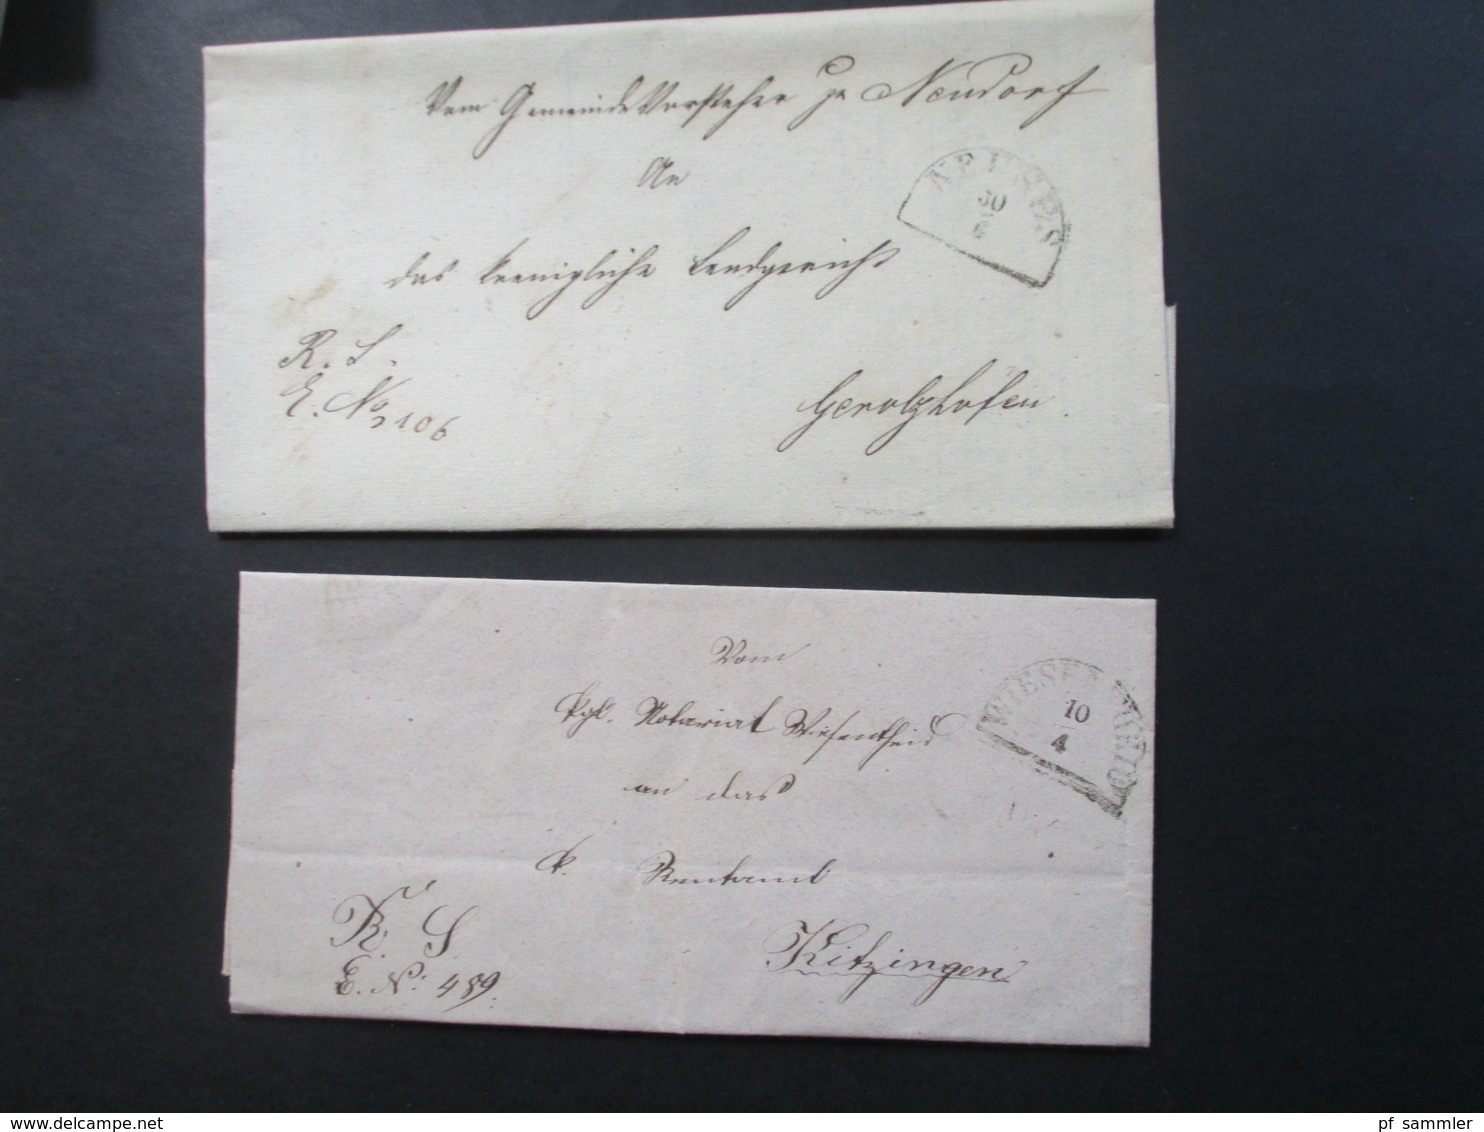 Vom Gemeinde Vorsteher zu Neudorf
An
das koenigliche Landgericht
30
6
R. S.
E. No 106
Gerolzhofen.
Vom
Kgl. Notariat Wiesentheid
WIESENTHEID
10
4
an das
k. Rentamt
R. S.
E. N: 489.
Kitzingen
www.delcampe.net
pf_sammler